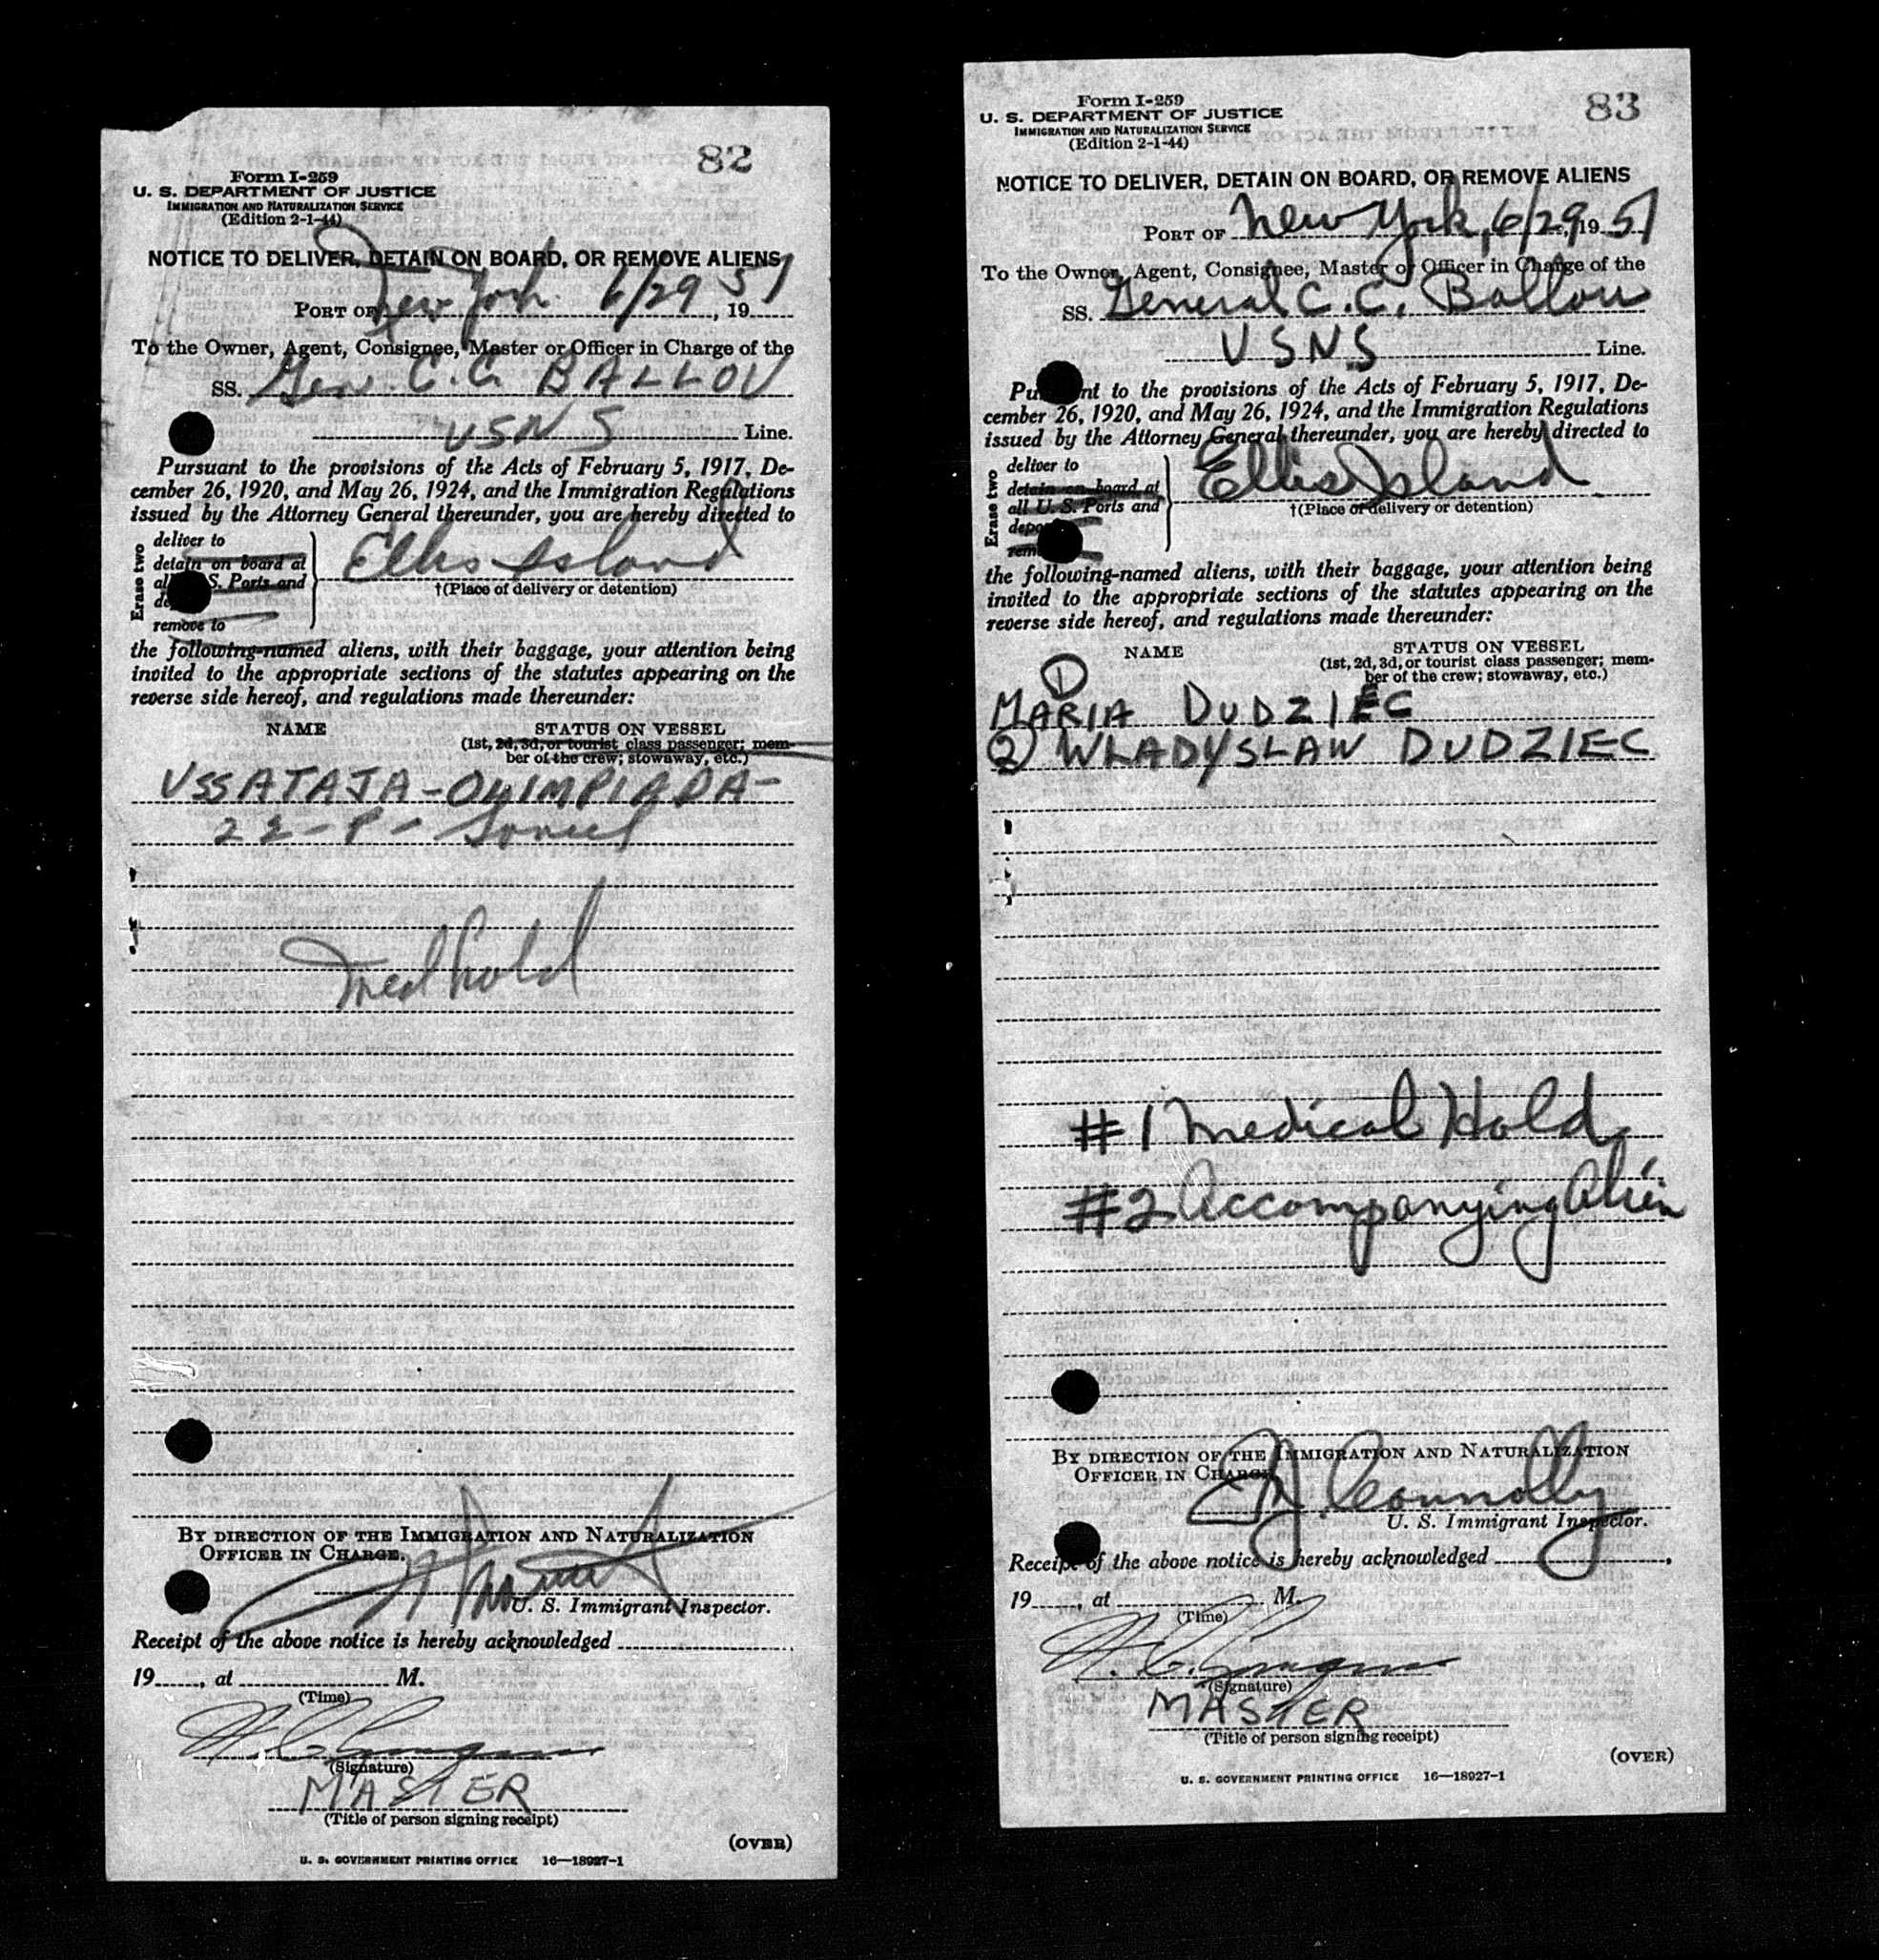 82
Form I-259
U. S. DEPARTMENT OF JUSTICE
IMMIGRATION AND NATURALIZATION SERVICE
(Edition 2-1-44)
NOTICE TO DELIVER, DETAIN ON BOARD, OR REMOVE ALIENS
PORT OF New York 6/29, 19 51
To the Owner, Agent, Consignee, Master or Officer in Charge of the
SS. Gen. C. C. BALLOU
USNS Line.
Pursuant to the provisions of the Acts of February 5, 1917, De-
cember 26, 1920, and May 26, 1924, and the Immigration Regulations
issued by the Attorney General thereunder, you are hereby directed to
Erase two
deliver to
detain on board at
S. Ports and
remove to
Ellis Island
†(Place of delivery or detention)
the following-named aliens, with their baggage, your attention being
invited to the appropriate sections of the statutes appearing on the
reverse side hereof, and regulations made thereunder:
NAME STATUS ON VESSEL
(1st, 2d, 3d, or tourist class passenger; mem-
ber of the crew; stowaway, etc.)
USSATAJA-OLIMPIADA-
22-
Med hold
BY DIRECTION OF THE IMMIGRATION AND NATURALIZATION
OFFICER IN CHARGE.
U. S. Immigrant Inspector.
Receipt of the above notice is hereby acknowledged
19, at M.
(Time)
(Signature)
MASTER
(Title of person signing receipt)
(OVER)
U. S. GOVERNMENT PRINTING OFFICE 16—18927-1
83
Form I-259
U. S. DEPARTMENT OF JUSTICE
IMMIGRATION AND NATURALIZATION SERVICE
(Edition 2-1-44)
NOTICE TO DELIVER, DETAIN ON BOARD, OR REMOVE ALIENS
PORT OF New York, 6/29, 19 51
To the Owner, Agent, Consignee, Master or Officer in Charge of the
SS. General C. C. Ballou
USNS Line.
Pu nt to the provisions of the Acts of February 5, 1917, De-
cember 26, 1920, and May 26, 1924, and the Immigration Regulations
issued by the Attorney General thereunder, you are hereby directed to
Erase two
deliver to
detain on board at
all U. S. Ports and
Ellis Island
†(Place of delivery or detention)
the following-named aliens, with their baggage, your attention being
invited to the appropriate sections of the statutes appearing on the
reverse side hereof, and regulations made thereunder:
NAME STATUS ON VESSEL
(1st, 2d, 3d, or tourist class passenger; mem-
ber of the crew; stowaway, etc.)
①
MARIA DUDZIEC
② WLADYSLAW DUDZIEC
#1 Medical Hold
#2 Accompanying Alien
BY DIRECTION OF THE IMMIGRATION AND NATURALIZATION
OFFICER IN CHARGE.
Connolly
U. S. Immigrant Inspector.
Receipt of the above notice is hereby acknowledged
19, at M.
(Time)
(Signature)
MASTER
(Title of person signing receipt)
(OVER)
U. S. GOVERNMENT PRINTING OFFICE 16—18927-1